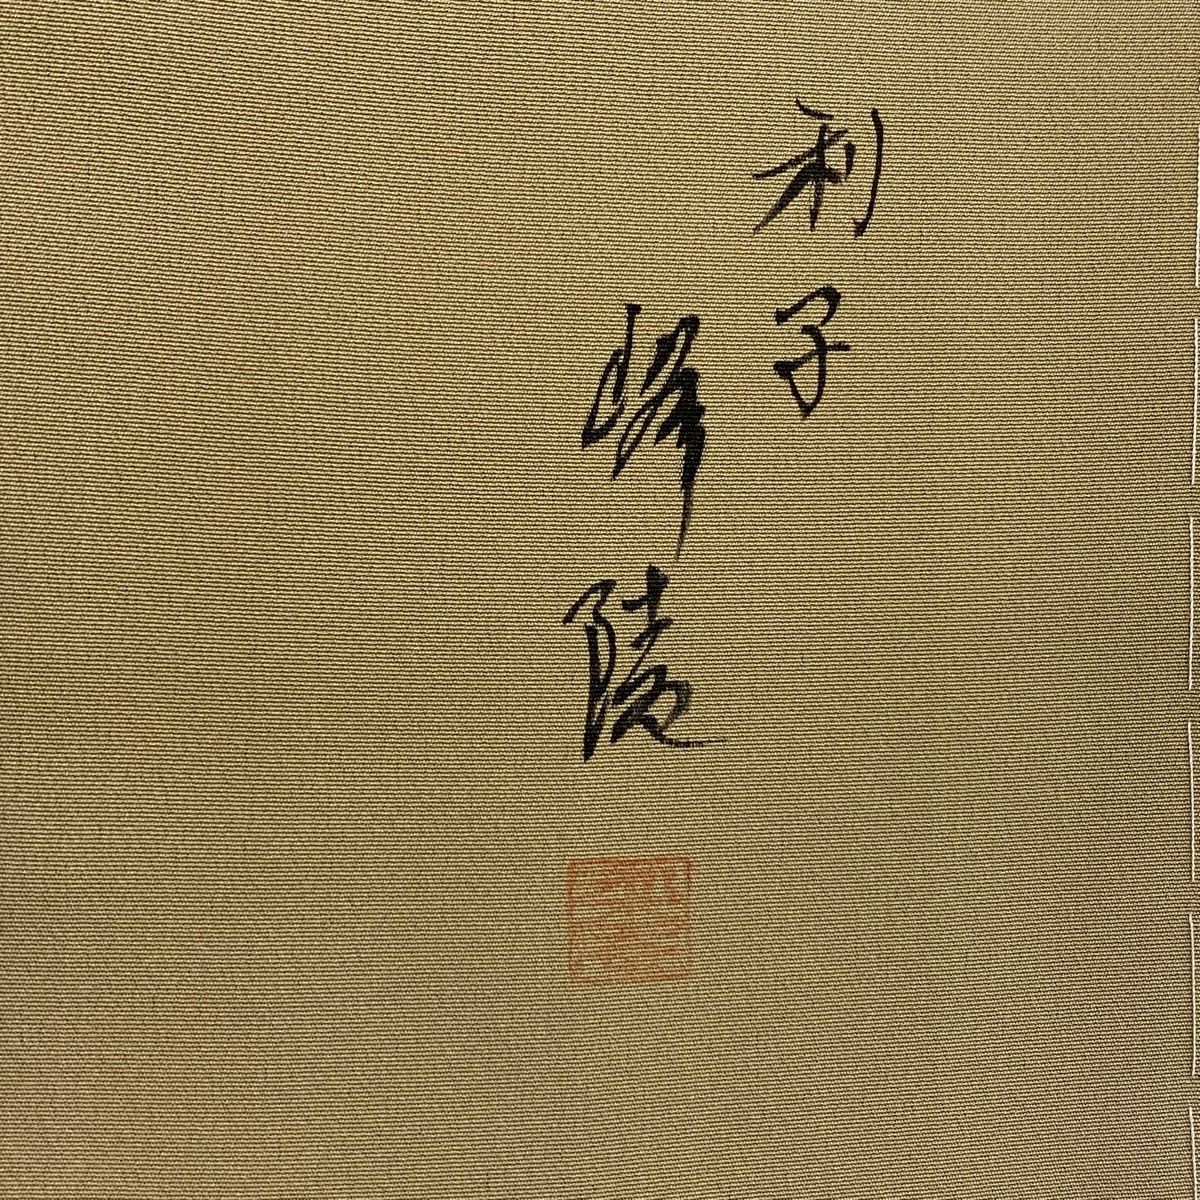 利子
峰陵